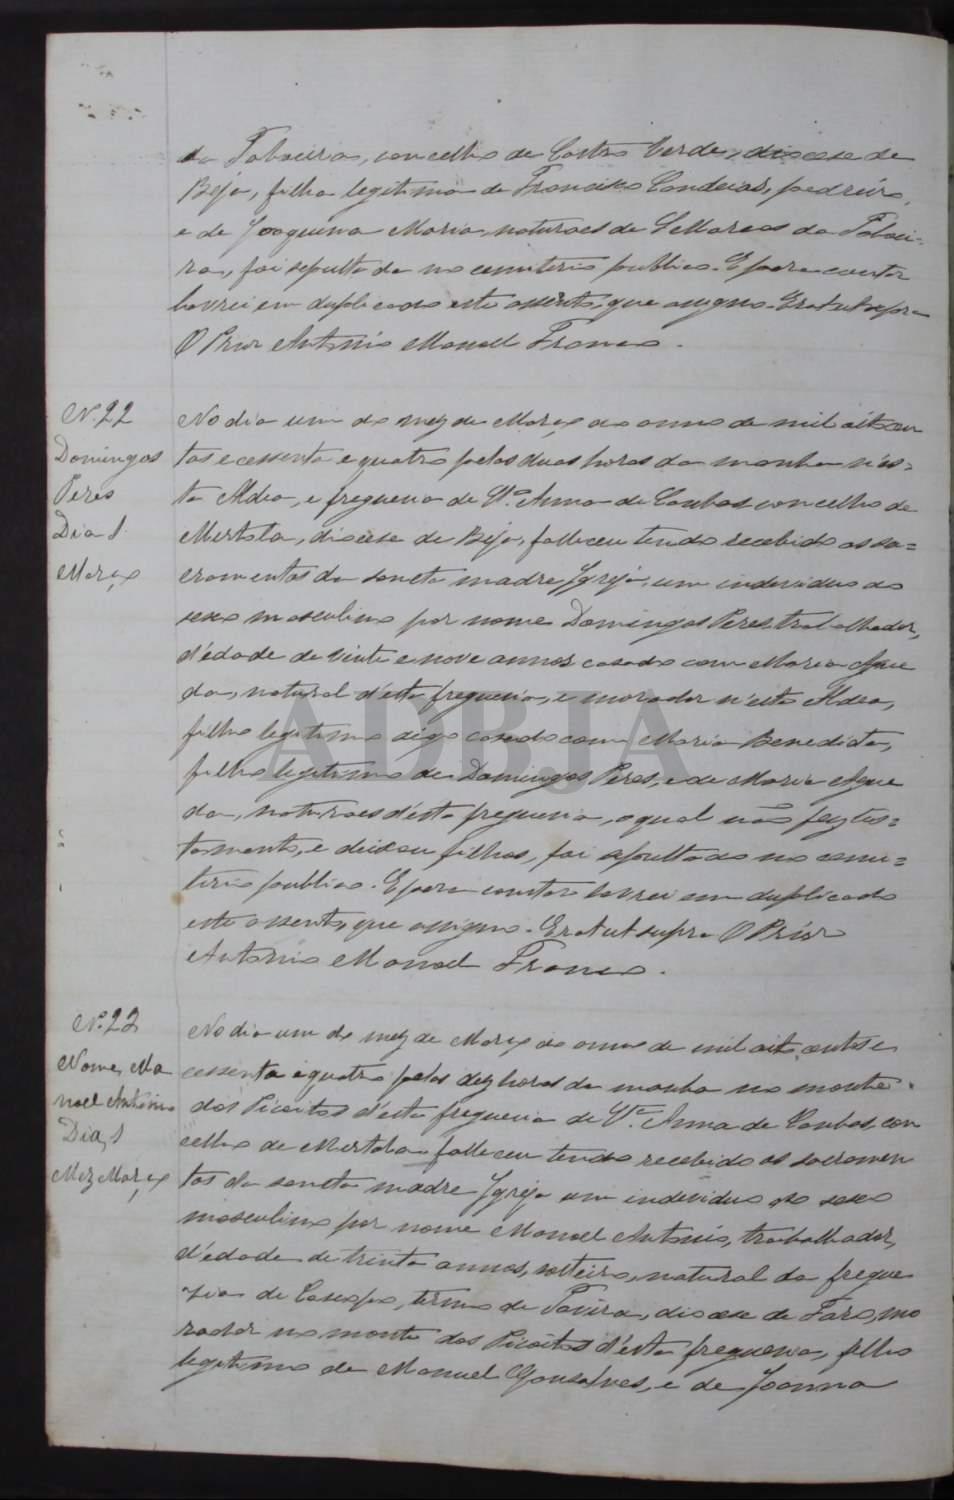 da Taboeira, concelho de Castro Verde, diocese de
Beja, filha legitima de Francisco Candeias, pedreiro,
e de Joaquina Maria, naturaes de S. Marcos da Taboei-
ra, foi sepultada no cemiterio publico. E para constar
lavrei em duplicado este assento, que assigno. Era ut supra
O Prior Antonio Manoel Franco.
N. 22
Domingos
Peres
Dia 1
Março
No dia um do mez de Março do anno de mil oitocen
tos e cessenta e quatro pelas duas horas da manha n'es=
ta Aldea, e freguesia de St.ª Anna de Cambas concelho de
Mertola, diocese de Beja, falleceu tendo recebido os sa=
cramentos da sancta madre Igreja, um individuo do
sexo masculino por nome Domingos Peres, trabalhador,
d'edade de vinte e nove annos casado com Maria Ague
da, natural d'esta freguesia, e morador n'esta Aldea,
filho legitimo digo casado com Maria Benedicta,
filho legitimo de Domingos Peres, e de Maria Ague
da, naturaes d'esta freguesia, o qual não fez tes=
tamento, e deixou filhos, foi sepultado no cemi=
terio publico. E para constar lavrei em duplicado
este assento, que assigno. Era ut supra O Prior
Antonio Manoel Franco.
N.º 23
Nome, Ma
noel Antonio
Dia, 1
Mez Março
No dia um do mez de Março do anno de mil oito centos e
cessenta e quatro pelas dez horas da manha no monte
dos Picoitos d'esta freguesia de St.ª Anna de Cambas, con
celho de Mertola falleceu tendo recebido os sacramen
tos da sancta madre Igreja um individuo do sexo
masculino por nome Manoel Antonio, trabalhador,
d'edade de trinta annos, solteiro, natural da fregue
zia de Caxopo, termo de Tavira, diocese de Faro, mo
rador no monte dos Picoitos d'esta freguesia, filho
legitimo de Manuel Gonsalves, e de Joanna
ADBJA